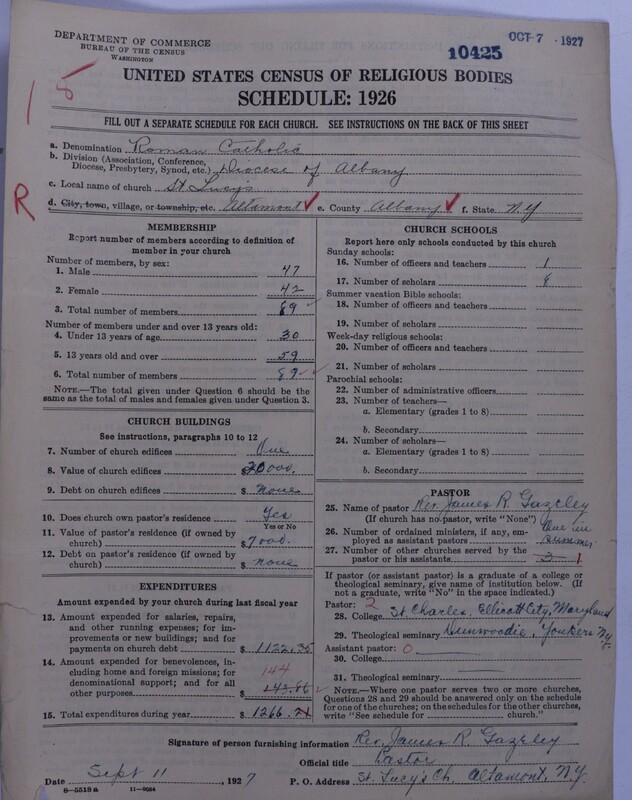 DEPARTMENT OF COMMERCE
BUREAU OF THE CENSUS
WASHINGTON
10425
OCT-7 1927
15
UNITED STATES CENSUS OF RELIGIOUS BODIES
SCHEDULE: 1926
FILL OUT A SEPARATE SCHEDULE FOR EACH CHURCH. SEE INSTRUCTIONS ON THE BACK OF THIS SHEET
a. Denomination Roman Catholic
b. Division (Association, Conference,
Diocese, Presbytery, Synod, etc.) Diocese of Albany
c. Local name of church St Lucy's
R
d. City, town, village, or township, etc. Altamont e. County Albany f. State N.Y
MEMBERSHIP
Report number of members according to definition of
member in your church
Number of members, by sex:
1. Male 47
2. Female 42
3. Total number of members 89
Number of members under and over 13 years old:
4. Under 13 years of age 30
5. 13 years old and over 59
6. Total number of members 89
NOTE.—The total given under Question 6 should be the
same as the total of males and females given under Question 3.
CHURCH BUILDINGS
See instructions, paragraphs 10 to 12
7. Number of church edifices One
8. Value of church edifices $20000.
9. Debt on church edifices $ none
10. Does church own pastor's residence Yes
Yes or No
11. Value of pastor's residence (if owned by
church) $7000.
12. Debt on pastor's residence (if owned by
church) $ none
EXPENDITURES
Amount expended by your church during last fiscal year
13. Amount expended for salaries, repairs,
and other running expenses; for im-
provements or new buildings; and for
payments on church debt $1122.35
14. Amount expended for benevolences, in-
cluding home and foreign missions; for
denominational support; and for all
other purposes 144 143.86
15. Total expenditures during year $1266.21
CHURCH SCHOOLS
Report here only schools conducted by this church
Sunday schools:
16. Number of officers and teachers 1
17. Number of scholars 8
Summer vacation Bible schools:
18. Number of officers and teachers
19. Number of scholars
Week-day religious schools:
20. Number of officers and teachers
21. Number of scholars
Parochial schools:
22. Number of administrative officers
23. Number of teachers—
a. Elementary (grades 1 to 8)
b. Secondary
24. Number of scholars—
a. Elementary (grades 1 to 8)
b. Secondary
PASTOR
25. Name of pastor Rev. James R. Gazeley
(If church has no pastor, write "None")
26. Number of ordained ministers, if any, em-
ployed as assistant pastors One in summer
27. Number of other churches served by the
pastor or his assistants 3 1
If pastor (or assistant pastor) is a graduate of a college or
theological seminary, give name of institution below. (If
not a graduate, write "No" in the space indicated.)
Pastor: 2
28. College St Charles, Ellicott City, Maryland
29. Theological seminary Dunwoodie, Yonkers N.y.
Assistant pastor: 0
30. College
31. Theological seminary
NOTE.—Where one pastor serves two or more churches,
Questions 28 and 29 should be answered only on the schedule
for one of the churches; on the schedules for the other churches,
write "See schedule for church."
Signature of person furnishing information Rev. James R. Gazeley
Official title Pastor
Date Sept 11, 1927 P. O. Address St. Lucy's Ch. Altamont, N.Y.
8-5518a 11-9084